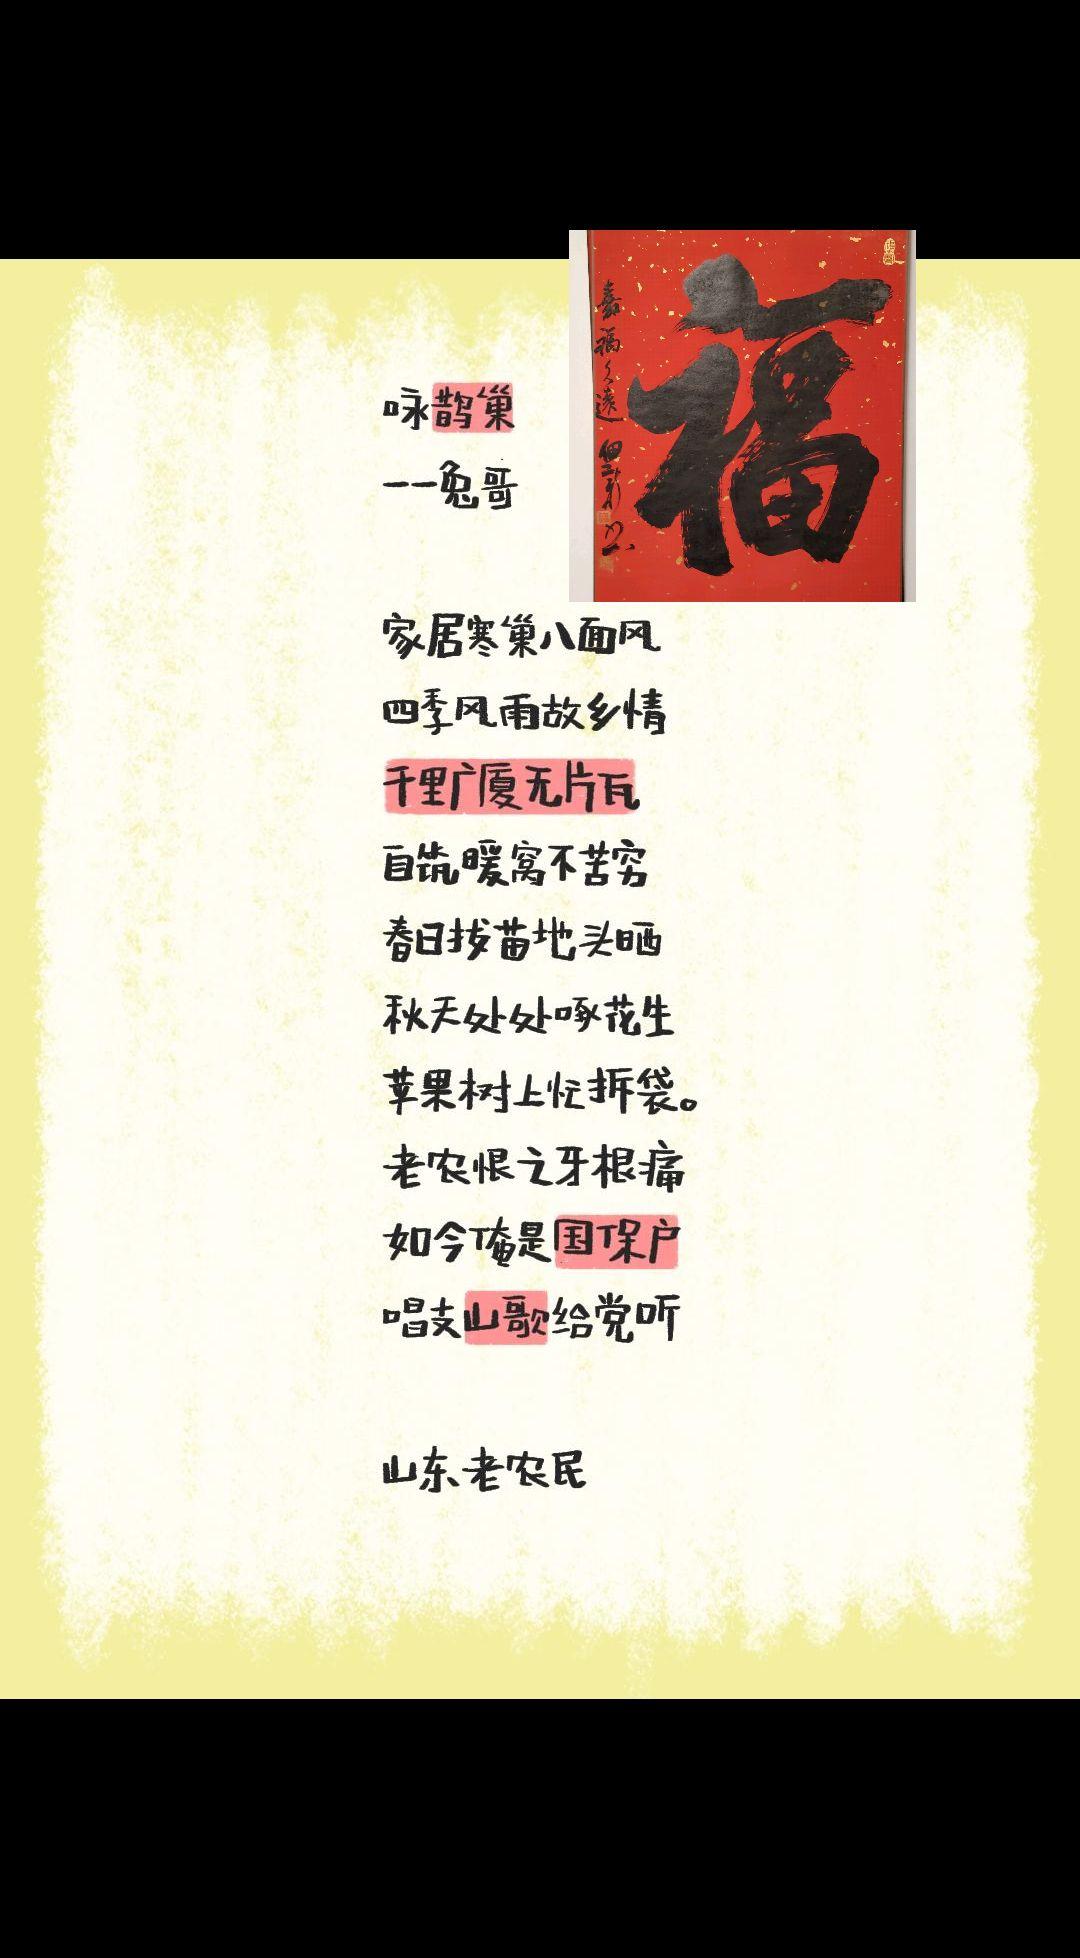 福
嘉福久远
咏鹊巢
——兔哥
家居寒巢八面风
四季风雨故乡情
千里广厦无片瓦
自筑暖窝不苦穷
春日拔苗地头晒
秋天处处啄花生
苹果树上忙拆袋。
老农恨之牙根痛
如今俺是国保户
唱支山歌给党听
山东老农民